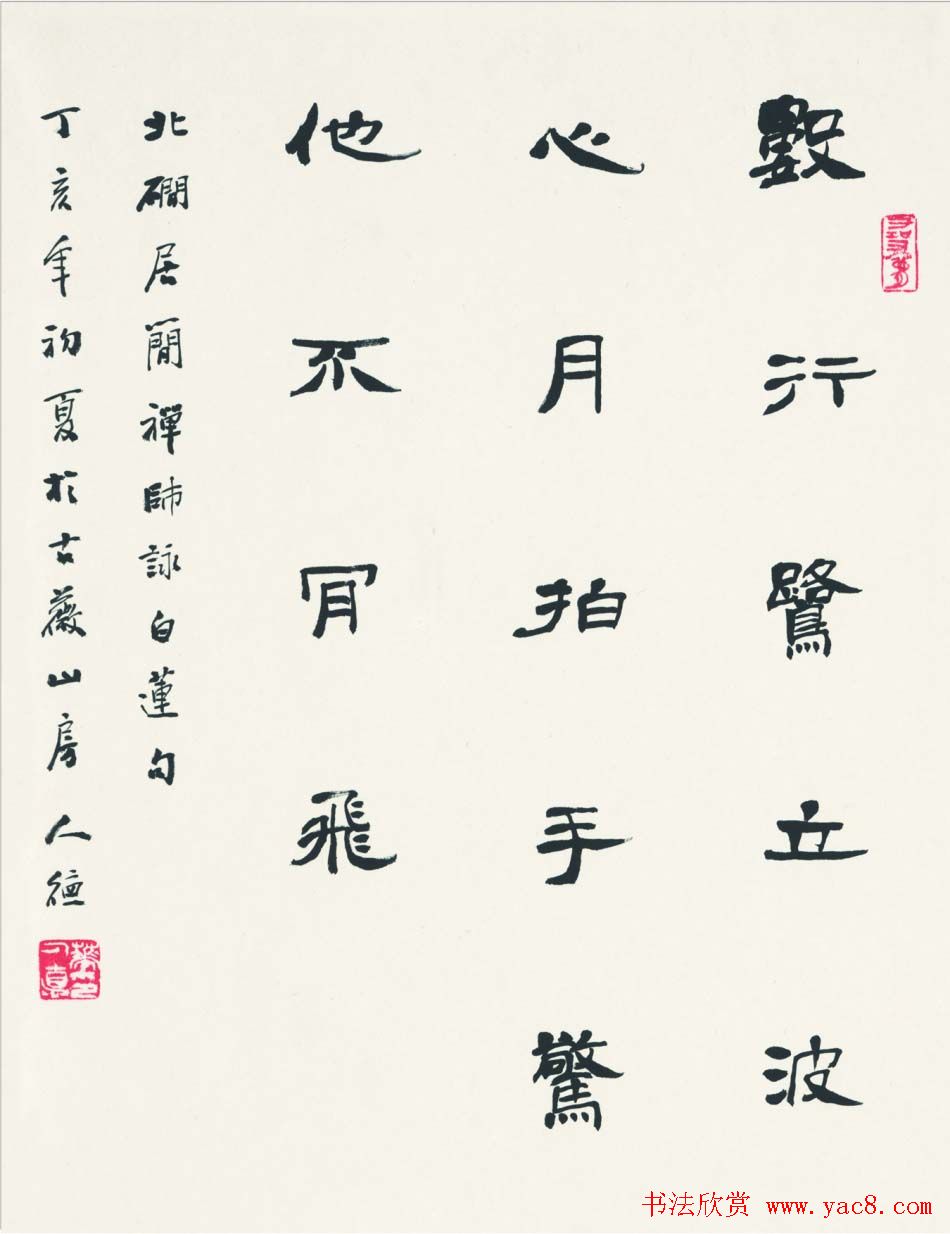 數行鷺立波
心月拍手驚
他不肎飛
北磵居簡禪師詠白蓮句
丁亥年初夏於古薇山房人德
华印人悳
书法欣赏 www.yac8.com